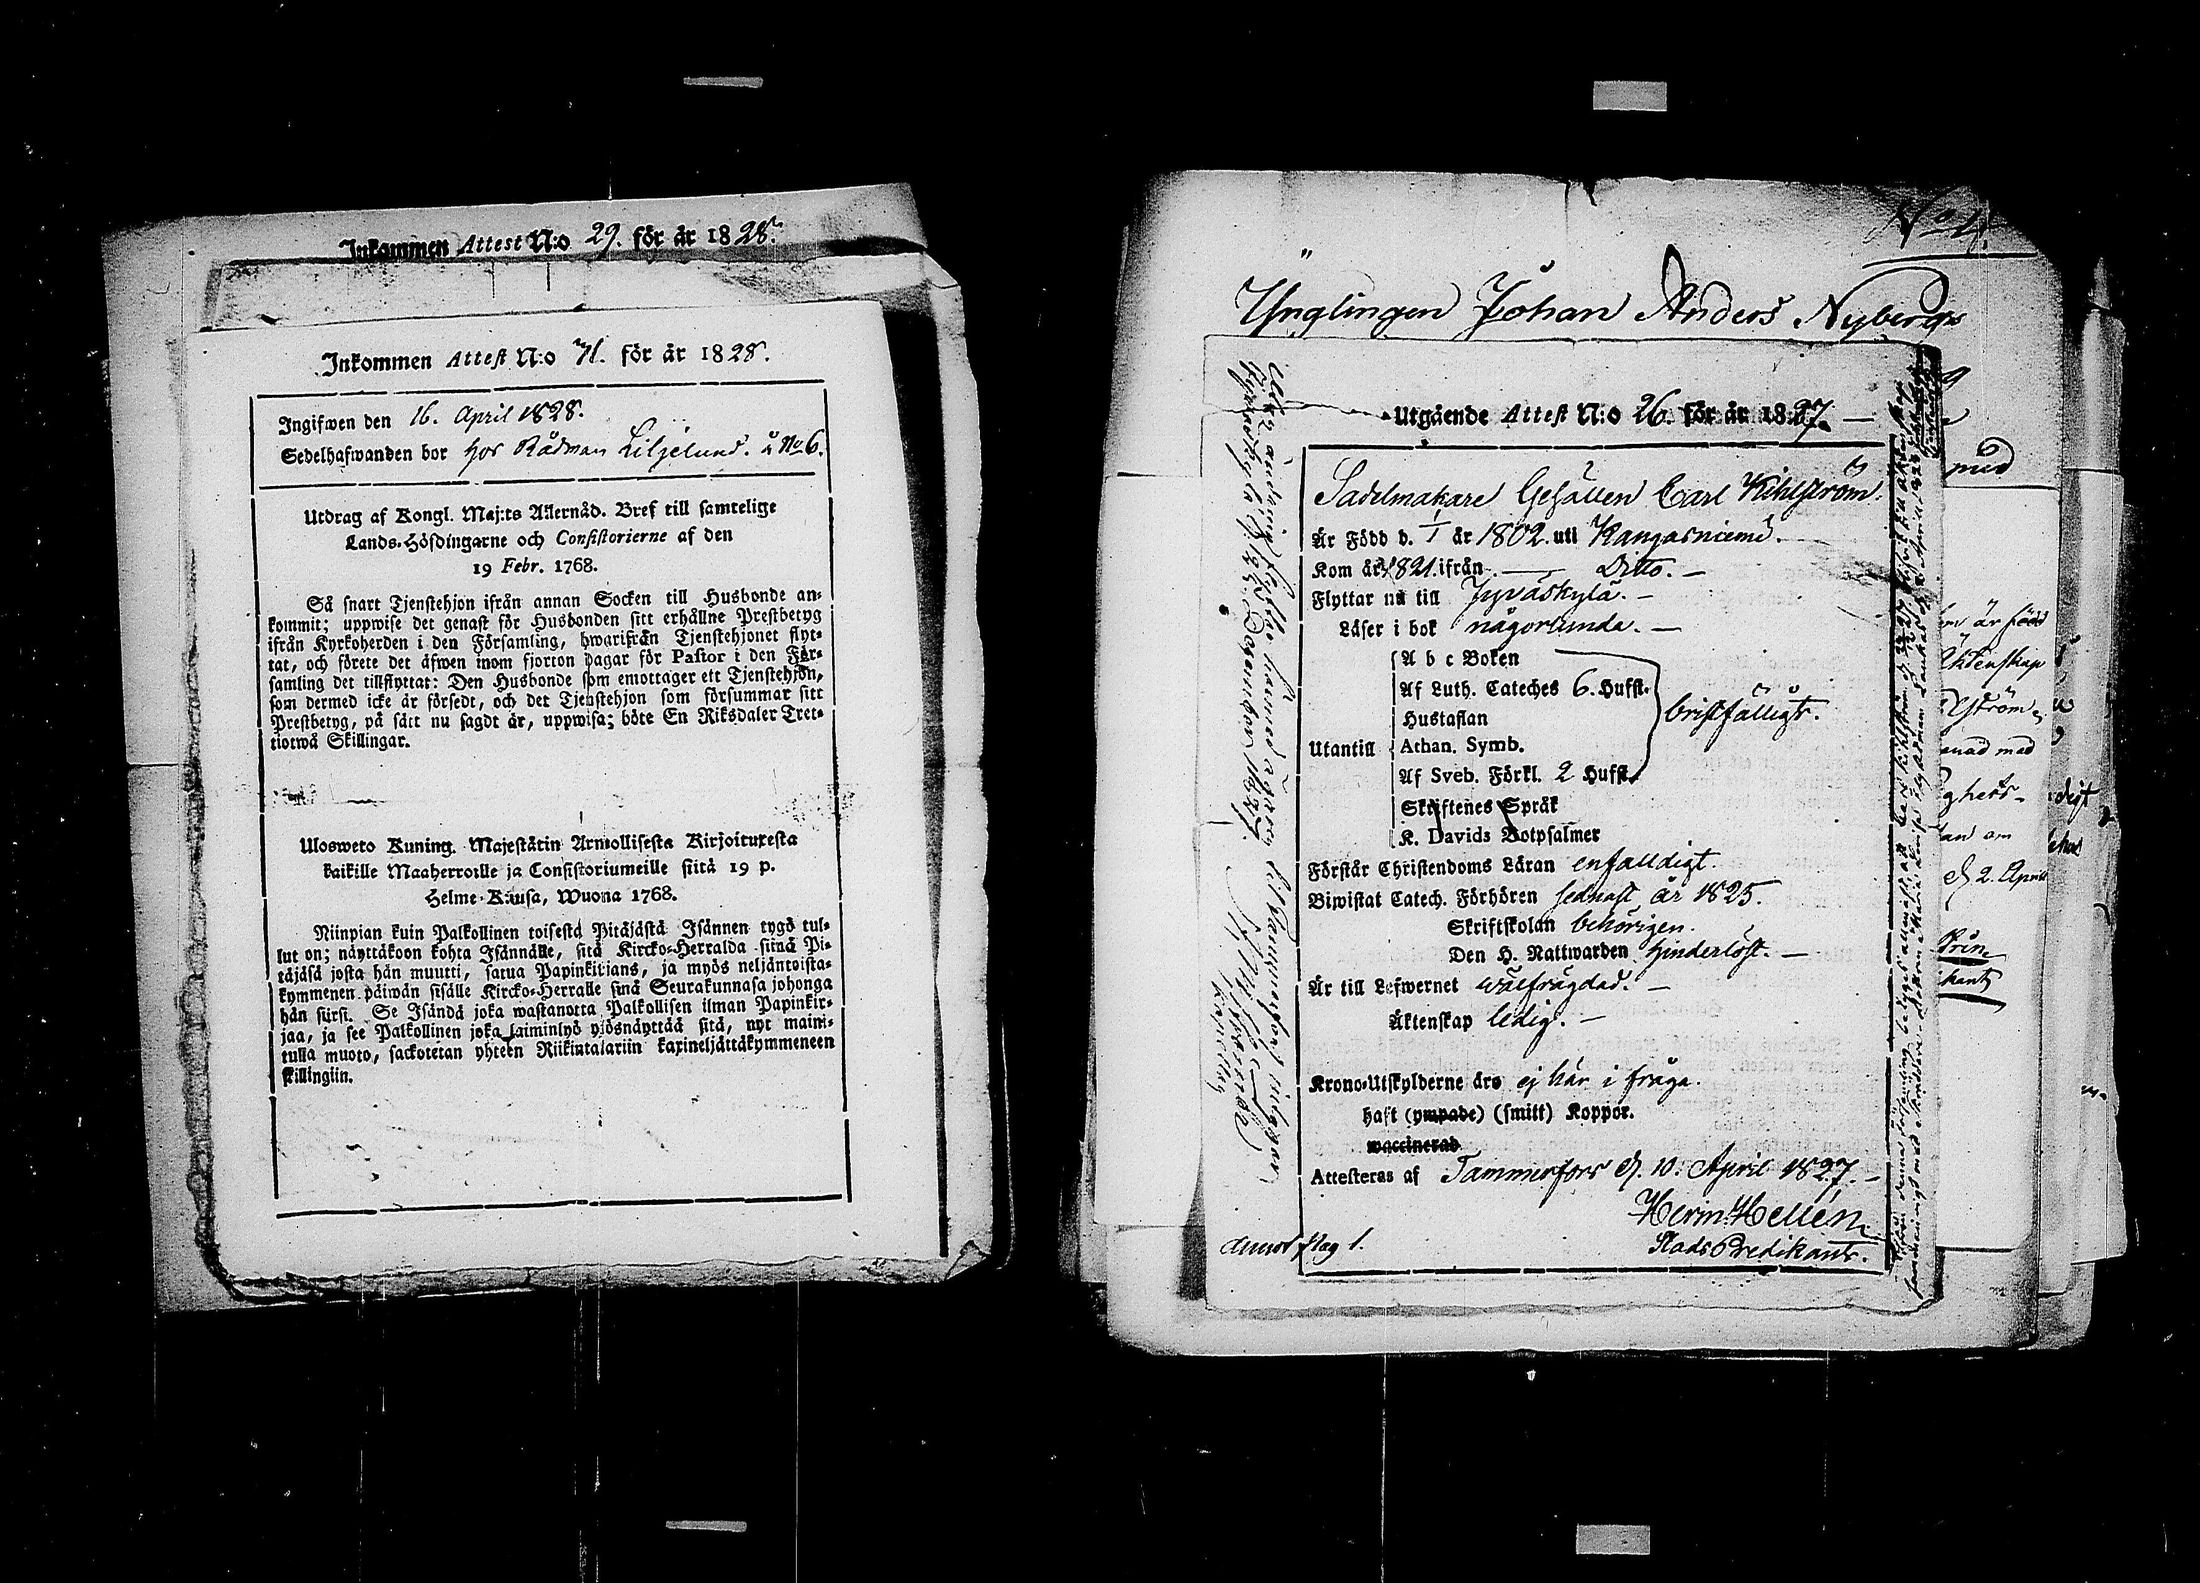 Inkommen Attest N:o 29. för år 1828.
Inkommen Attest N:o 71. för år 1828.
Ingifwen den 16. April 1828.
Sedelhafwanden bor hos Rådman Liljelund. å No 6.
Utdrag af Kongl. Maj:ts Allernåd. Bref till samtelige
Lands-Höfdingarne och Consistorierne af den
19 Febr. 1768.
Så snart Tjenstehjon ifrån annan Socken till Husbonde an-
kommit; uppwise det genast för Husbonden sitt erhållne Prestbetyg
ifrån Kyrkoherden i den Församling, hwarifrån Tjenstehjonet flyt-
tat, och förete det äfwen inom fjorton dagar för Pastor i den För-
samling det tillflyttat: Den Husbonde som emottager ett Tjenstehjon,
som dermed icke är försedt, och det Tjenstehjon som försummar sitt
Prestbetyg, på sätt nu sagdt är, uppwisa; böte En Riksdaler Tret-
tiotwå Skillingar.
Ulosweto Kuning. Majestätin Armollisesta Kirjoituxesta
kaikille Maaherroille ja Consistoriumeille siitä 19 p.
Helme-Kuusa, Wuona 1768.
Niinpian kuin Palkollinen toisesta Pitäjästä Isännen tygö tul-
lut on; näyttäkoon kohta Isännälle, sitä Kircko-Herralda siinä Pi-
täjäsä josta hän muutti, satua Papinkirjans, ja myös neljäntoista-
kymmenen päiwän sisälle Kircko-Herralle siinä Seurakunnasa johonga
hän siirsi. Se Isändä joka wastanotta Palkollisen ilman Papinkir-
jaa, ja see Palkollinen joka laiminlyö ylösnäyttää sitä, nyt maini-
tulla muoto, sackotetan yhteen Riikintalariin kaxineljättäkymmeneen
skillingiin.
Ynglingen Johan Anders Nybergs
Utgående Attest N:o 26. för år 1827.
Sadelmakare Gesällen Carl Kihlström.
Är Född d. 1/1 år 1802. uti Kangasniemi.
Kom år 1821. ifrån Ditto.
Flyttar nu till Jyväskylä.
Läser i bok någorlunda.
A b c Boken
Af Luth. Cateches 6. Hufst.
Hustaflan
bristfälligt.
Utantill Athan. Symb.
Af Sveb. Förkl. 2 Hufst.
Skriftenes Språk
K. Davids Botpsalmer
Förstår Christendoms Läran enfalldigt.
Biwistat Catech. Förhören sednast år 1825.
Skriftskolan behörigen.
Den H. Nattwarden hinderlöst.
Är till Lefwernet wälfrägdad.
Äktenskap ledig.
Krono-Utskylderne äro ej här i fråga.
haft (ympade) (smitt) Koppor.
waccinerad
Attesteras af Tammerfors d. 10. April 1827.
Herm: Hellén
Stads Predikant.
pag 1.
med
är född
Äktenskap
med
an om
d. 2. April